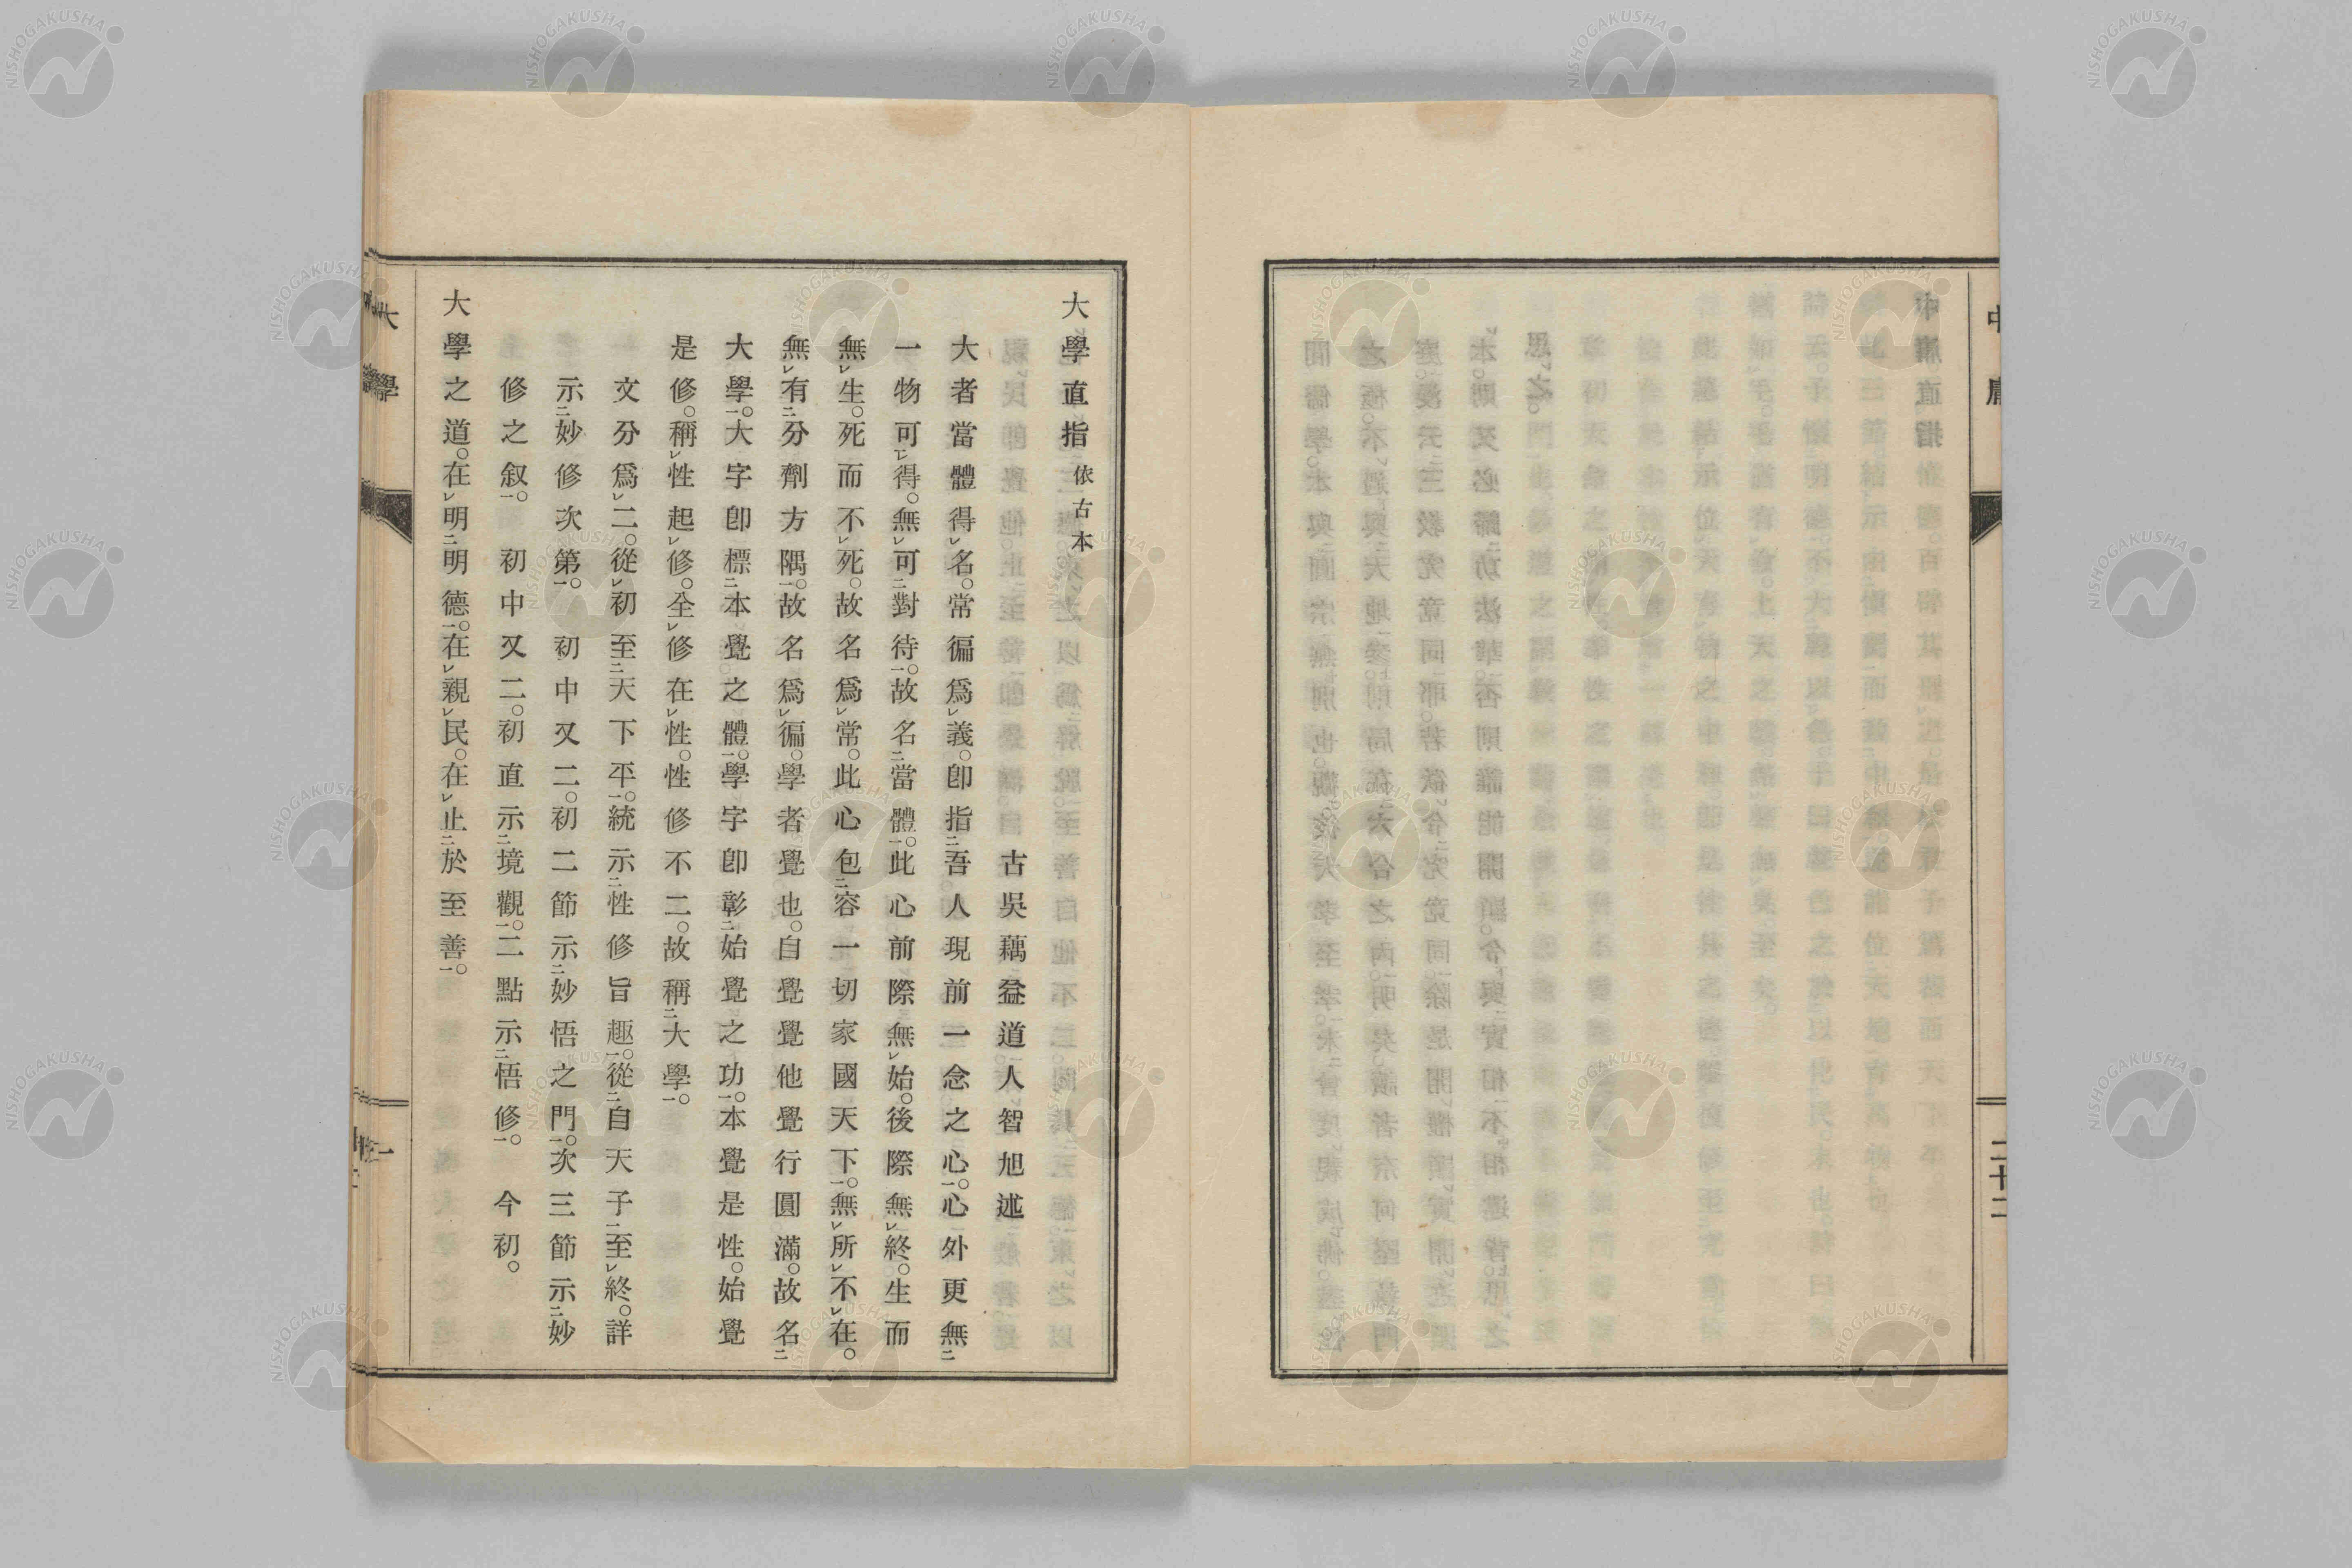 中庸
二十二
大學直指依古本
古吳藕益道人智旭述
大者當體得㆑名。常徧爲㆑義。卽指㆓吾人現前一念之心㆒。心外更無㆓
一物可㆒㆑得。無㆑可㆓對待㆒。故名㆓當體㆒。此心前際無㆑始。後際無㆑終。生而
無㆑生。死而不㆑死。故名爲㆑常。此心包㆓容一切家國天下㆒。無㆑所㆑不㆑在。
無㆑有㆓分劑方隅㆒。故名爲㆑徧。學者覺也。自覺覺他覺行圓滿。故名㆓
大學㆒。大字卽標㆓本覺之體㆒。學字卽彰㆓始覺之功㆒。本覺是性。始覺
是修。稱㆑性起㆑修。全㆑修在㆑性。性修不二。故稱㆓大學㆒。
文分爲㆑二。從㆑初至㆓天下平㆒。統示㆓性修旨趣㆒。從㆓自天子㆒至㆑終。詳
示㆓妙修次第㆒。初中又二。初二節示㆓妙悟之門㆒。次三節示㆓妙
修之叙㆒。初中又二。初直示㆓境觀㆒。二點示㆓悟修㆒。今初。
大學之道。在㆑明㆓明德㆒。在㆑親㆑民。在㆑止㆓於至善㆒。
大學
一